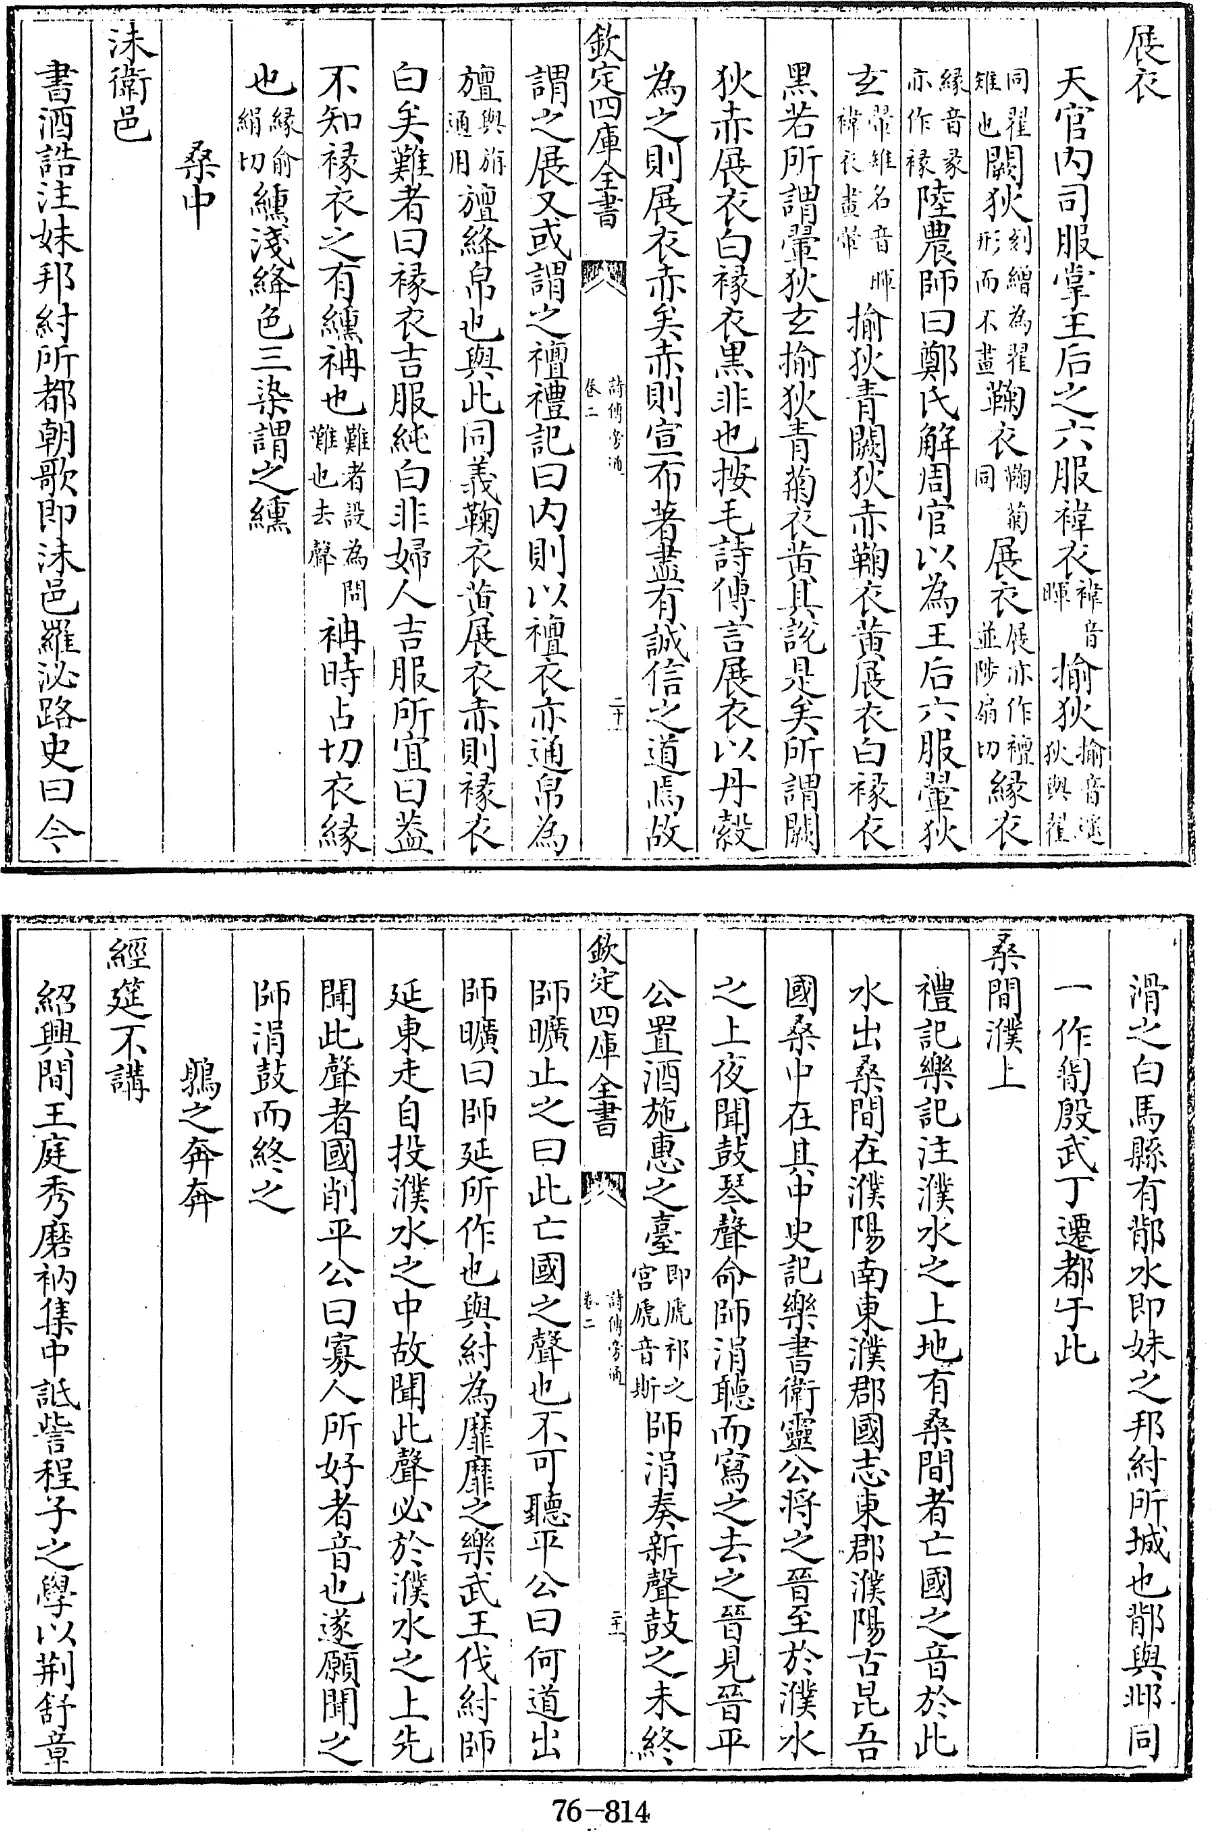 展衣
天官内司服掌王后之六服褘衣褘音暉揄狄揄音遥狄與翟
同翟雉也闕狄刻繒為翟形而不畫鞠衣鞠菊同展衣展亦作襢並陟扇切緣衣
緣音彖亦作褖陸農師曰鄭氏解周官以為王后六服翬狄
玄翬雉名音暉褘衣畫翬揄狄青闕狄赤鞠衣黄展衣白褖衣
黑若所謂翬狄玄揄狄青菊衣黄其說是矣所謂闕
狄赤展衣白褖衣黑非也按毛詩傳言展衣以丹縠
為之則展衣赤矣赤則宣布著盡有誠信之道焉故
欽定四庫全書
詩傳旁通
卷二
二十
謂之展又或謂之襢禮記曰内則以襢衣亦通帛為
旜與旃通用旜絳帛也與此同義鞠衣黄展衣赤則褖衣
白矣難者曰褖衣吉服純白非婦人吉服所宜曰葢
不知褖衣之有纁袡也難者設為問難也去聲袡時占切衣縁
也縁俞絹切纁淺絳色三染謂之纁
桑中
沬衛邑
書酒誥注妹邦紂所都朝歌即沬邑羅泌路史曰今
滑之白馬縣有鄁水即妹之邦紂所城也鄁與邶同
一作𨛫殷武丁遷都于此
桑間濮上
禮記樂記注濮水之上地有桑間者亡國之音於此
水出桑間在濮陽南東濮郡國志東郡濮陽古昆吾
國桑中在其中史記樂書衛靈公將之晉至於濮水
之上夜聞鼓琴聲命師涓聽而寫之去之晉見晉平
公置酒施惠之臺即虒祁之宫虒音斯師涓奏新聲鼓之未終
欽定四庫全書
詩傳旁通
卷二
二十一
師曠止之曰此亡國之聲也不可聽平公曰何道出
師曠曰師延所作也與紂為靡靡之樂武王伐紂師
延東走自投濮水之中故聞此聲必於濮水之上先
聞此聲者國削平公曰寡人所好者音也遂願聞之
師涓鼓而終之
鶉之奔奔
經筵不講
紹興間王庭秀磨衲集中詆訾程子之學以荆舒章
76-814